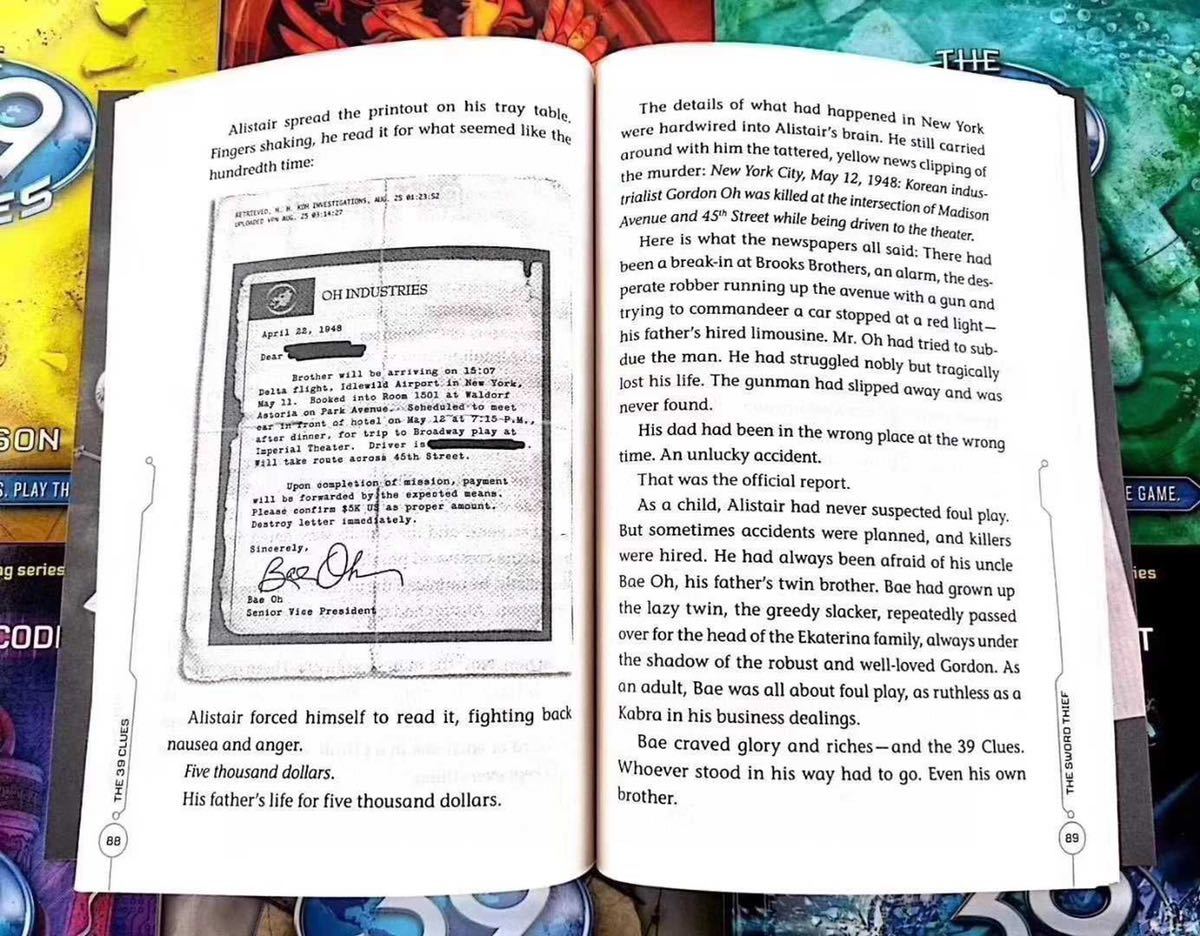 Alistair spread the printout on his tray table.
Fingers shaking, he read it for what seemed like the
hundredth time:
RETRIEVED, H. H. KOH INVESTIGATIONS, AUG. 25 01:23:52
UPLOADED VPN AUG. 25 03:14:27
OH INDUSTRIES
April 22, 1948
Dear
Brother will be arriving on 15:07
Delta flight, Idlewild Airport in New York,
May 11. Booked into Room 1501 at Waldorf
Astoria on Park Avenue. Scheduled to meet
car in front of hotel on May 12 at 7:15 P.M.,
after dinner, for trip to Broadway play at
Imperial Theater. Driver is
Will take route across 45th Street.
Upon completion of mission, payment
will be forwarded by the expected means.
Please confirm $5K US as proper amount.
Destroy letter immediately.
Sincerely,
Bae Oh
Bae Oh
Senior Vice President
Alistair forced himself to read it, fighting back
nausea and anger.
Five thousand dollars.
His father's life for five thousand dollars.
THE 39 CLUES
88
The details of what had happened in New York
were hardwired into Alistair's brain. He still carried
around with him the tattered, yellow news clipping of
the murder: New York City, May 12, 1948: Korean indus-
trialist Gordon Oh was killed at the intersection of Madison
Avenue and 45th Street while being driven to the theater.
Here is what the newspapers all said: There had
been a break-in at Brooks Brothers, an alarm, the des-
perate robber running up the avenue with a gun and
trying to commandeer a car stopped at a red light—
his father's hired limousine. Mr. Oh had tried to sub-
due the man. He had struggled nobly but tragically
lost his life. The gunman had slipped away and was
never found.
His dad had been in the wrong place at the wrong
time. An unlucky accident.
That was the official report.
As a child, Alistair had never suspected foul play.
But sometimes accidents were planned, and killers
were hired. He had always been afraid of his uncle
Bae Oh, his father's twin brother. Bae had grown up
the lazy twin, the greedy slacker, repeatedly passed
over for the head of the Ekaterina family, always under
the shadow of the robust and well-loved Gordon. As
an adult, Bae was all about foul play, as ruthless as a
Kabra in his business dealings.
Bae craved glory and riches—and the 39 Clues.
Whoever stood in his way had to go. Even his own
brother.
THE SWORD THIEF
89
THE
9
ES
SON
S. PLAY TH
E GAME.
ng series
ies
CODE
T
39
39